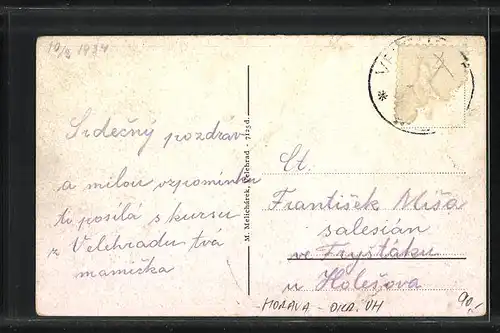 10/8 1934
Srdečný pozdrav
a milou vzpomínku
ti posílá s kursu
z Velehradu tvá
mamička
M. Melichárek, Velehrad - 7125d.
VE
*
Ct.
František Miša
salesián
ve Fryštáku
u Holešova
MORAVA - OKR. UH
90,-